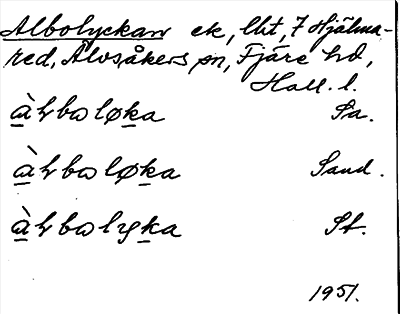 Albolyckan ek, lht, 7 Hjälma-
red, Alvsåkers sn, Fjäre hd,
Hall. l.
àlbaløka Sa.
àlbaløka Sand.
àlbalyka St.
1951.